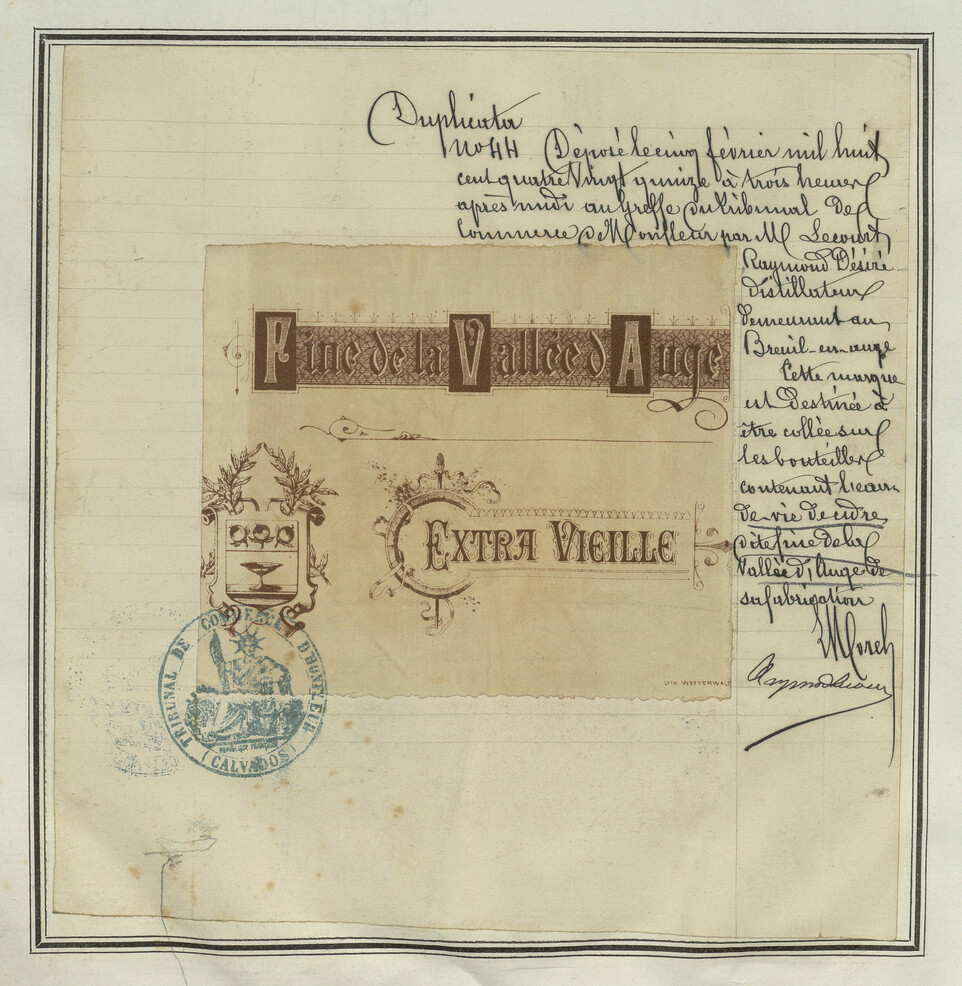 Duplicata
no 44 Déposé le cinq février mil huit
cent quatre vingt quinze à trois heures
après midi au Greffe du tribunal de
Commerce d'Honfleur par M Lecourt
Raymond Désiré
distillateur
demeurant au
Breuil-en-auge
Cette marque
est destinée à
être collée sur
les bouteilles
contenant l'eau
de vie de cidre
dite fine de la
Vallée d'Auge de
sa fabrication
Fine de la Vallée d'Auge
EXTRA VIEILLE
LITH. WETTERWALD
TRIBUNAL DE COMMERCE D'HONFLEUR
RÉPUBLIQUE FRANÇAISE
(CALVADOS)